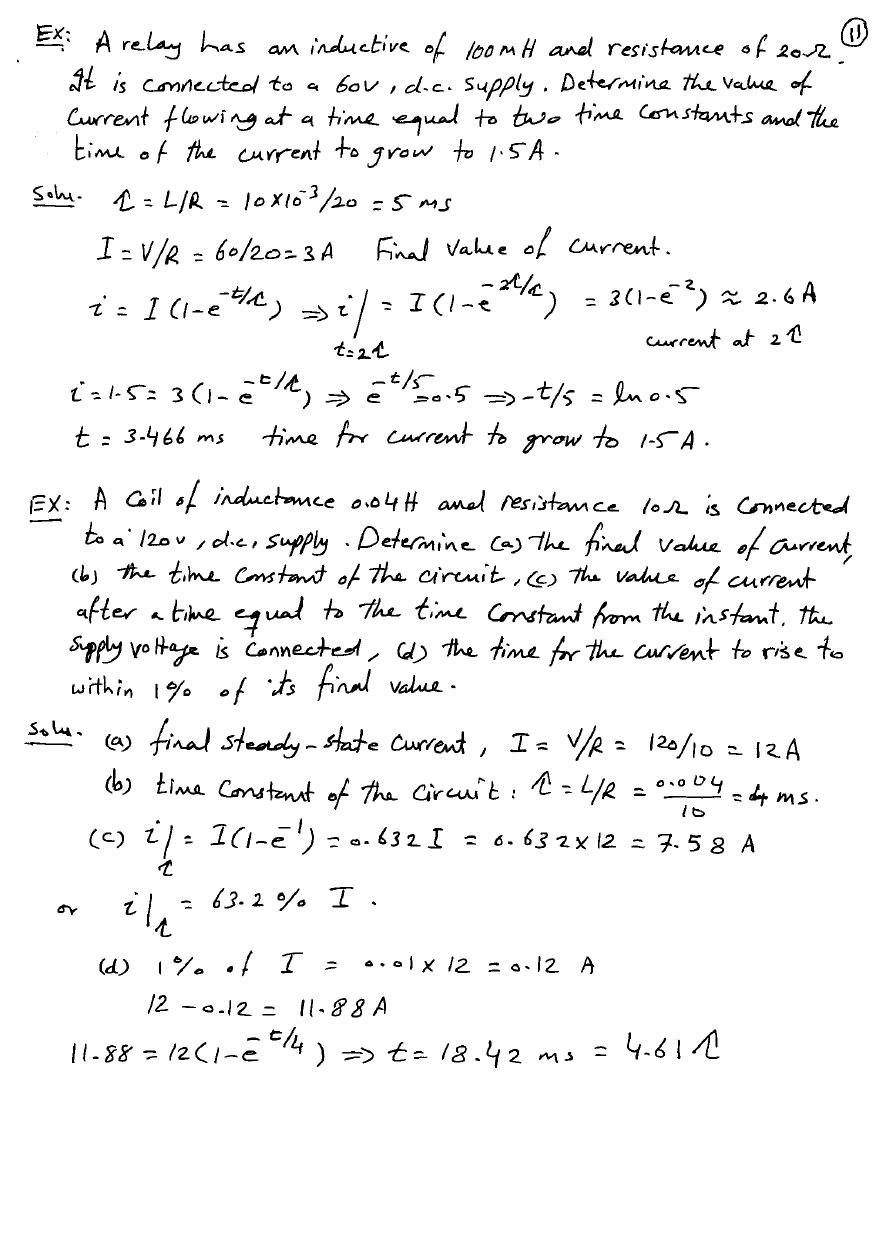 EX: A relay has an inductive of 100 mH and resistance of 20Ω. (11)
It is connected to a 60v, d.c. supply. Determine the value of
Current flowing at a time equal to two time constants and the
time of the current to grow to 1.5A.
Solu. τ = L/R = 10X10^-3/20 = 5 ms
I = V/R = 60/20 = 3A Final Value of current.
i = I (1-e^-t/τ) ⇒ i|t=2τ = I(1-e^-2τ/τ) = 3(1-e^-2) ≈ 2.6A
current at 2τ
i = 1.5 = 3(1-e^-t/τ) ⇒ e^-t/5 = 0.5 ⇒ -t/5 = ln 0.5
t = 3.466 ms time for current to grow to 1.5A.
EX: A Coil of inductance 0.04H and resistance 10Ω is Connected
to a 120v, d.c, supply. Determine (a) the final value of Current,
(b) the time Constant of the circuit, (c) the value of current
after a time equal to the time Constant from the instant, the
Supply voltage is Connected, (d) the time for the current to rise to
within 1% of its final value.
Solu. (a) final steady-state Current, I = V/R = 120/10 = 12A
(b) time Constant of the Circuit: τ = L/R = 0.004/10 = 4 ms.
(c) i|τ = I(1-e^-1) = 0.632 I = 0.632x12 = 7.58 A
or i|τ = 63.2% I.
(d) 1% of I = 0.01x12 = 0.12 A
12 - 0.12 = 11.88A
11.88 = 12(1-e^-t/4) ⇒ t = 18.42 ms = 4.61τ